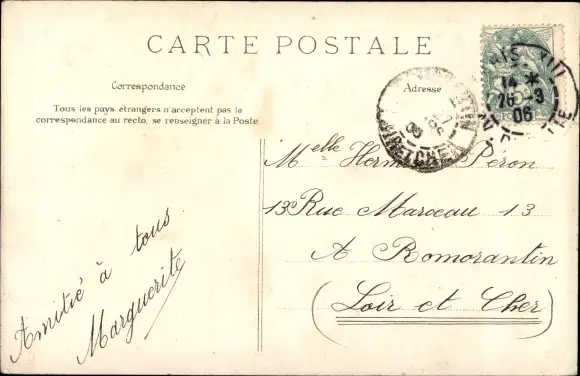 CARTE POSTALE
Correspondance
Tous les pays étrangers n'acceptent pas la
correspondance au recto, se renseigner à la Poste.
Adresse
Amitié à tous
Marguerite
Melle Péron
13 Rue Marceau 13
A Romorantin
(Loir et Cher)
14 *
06